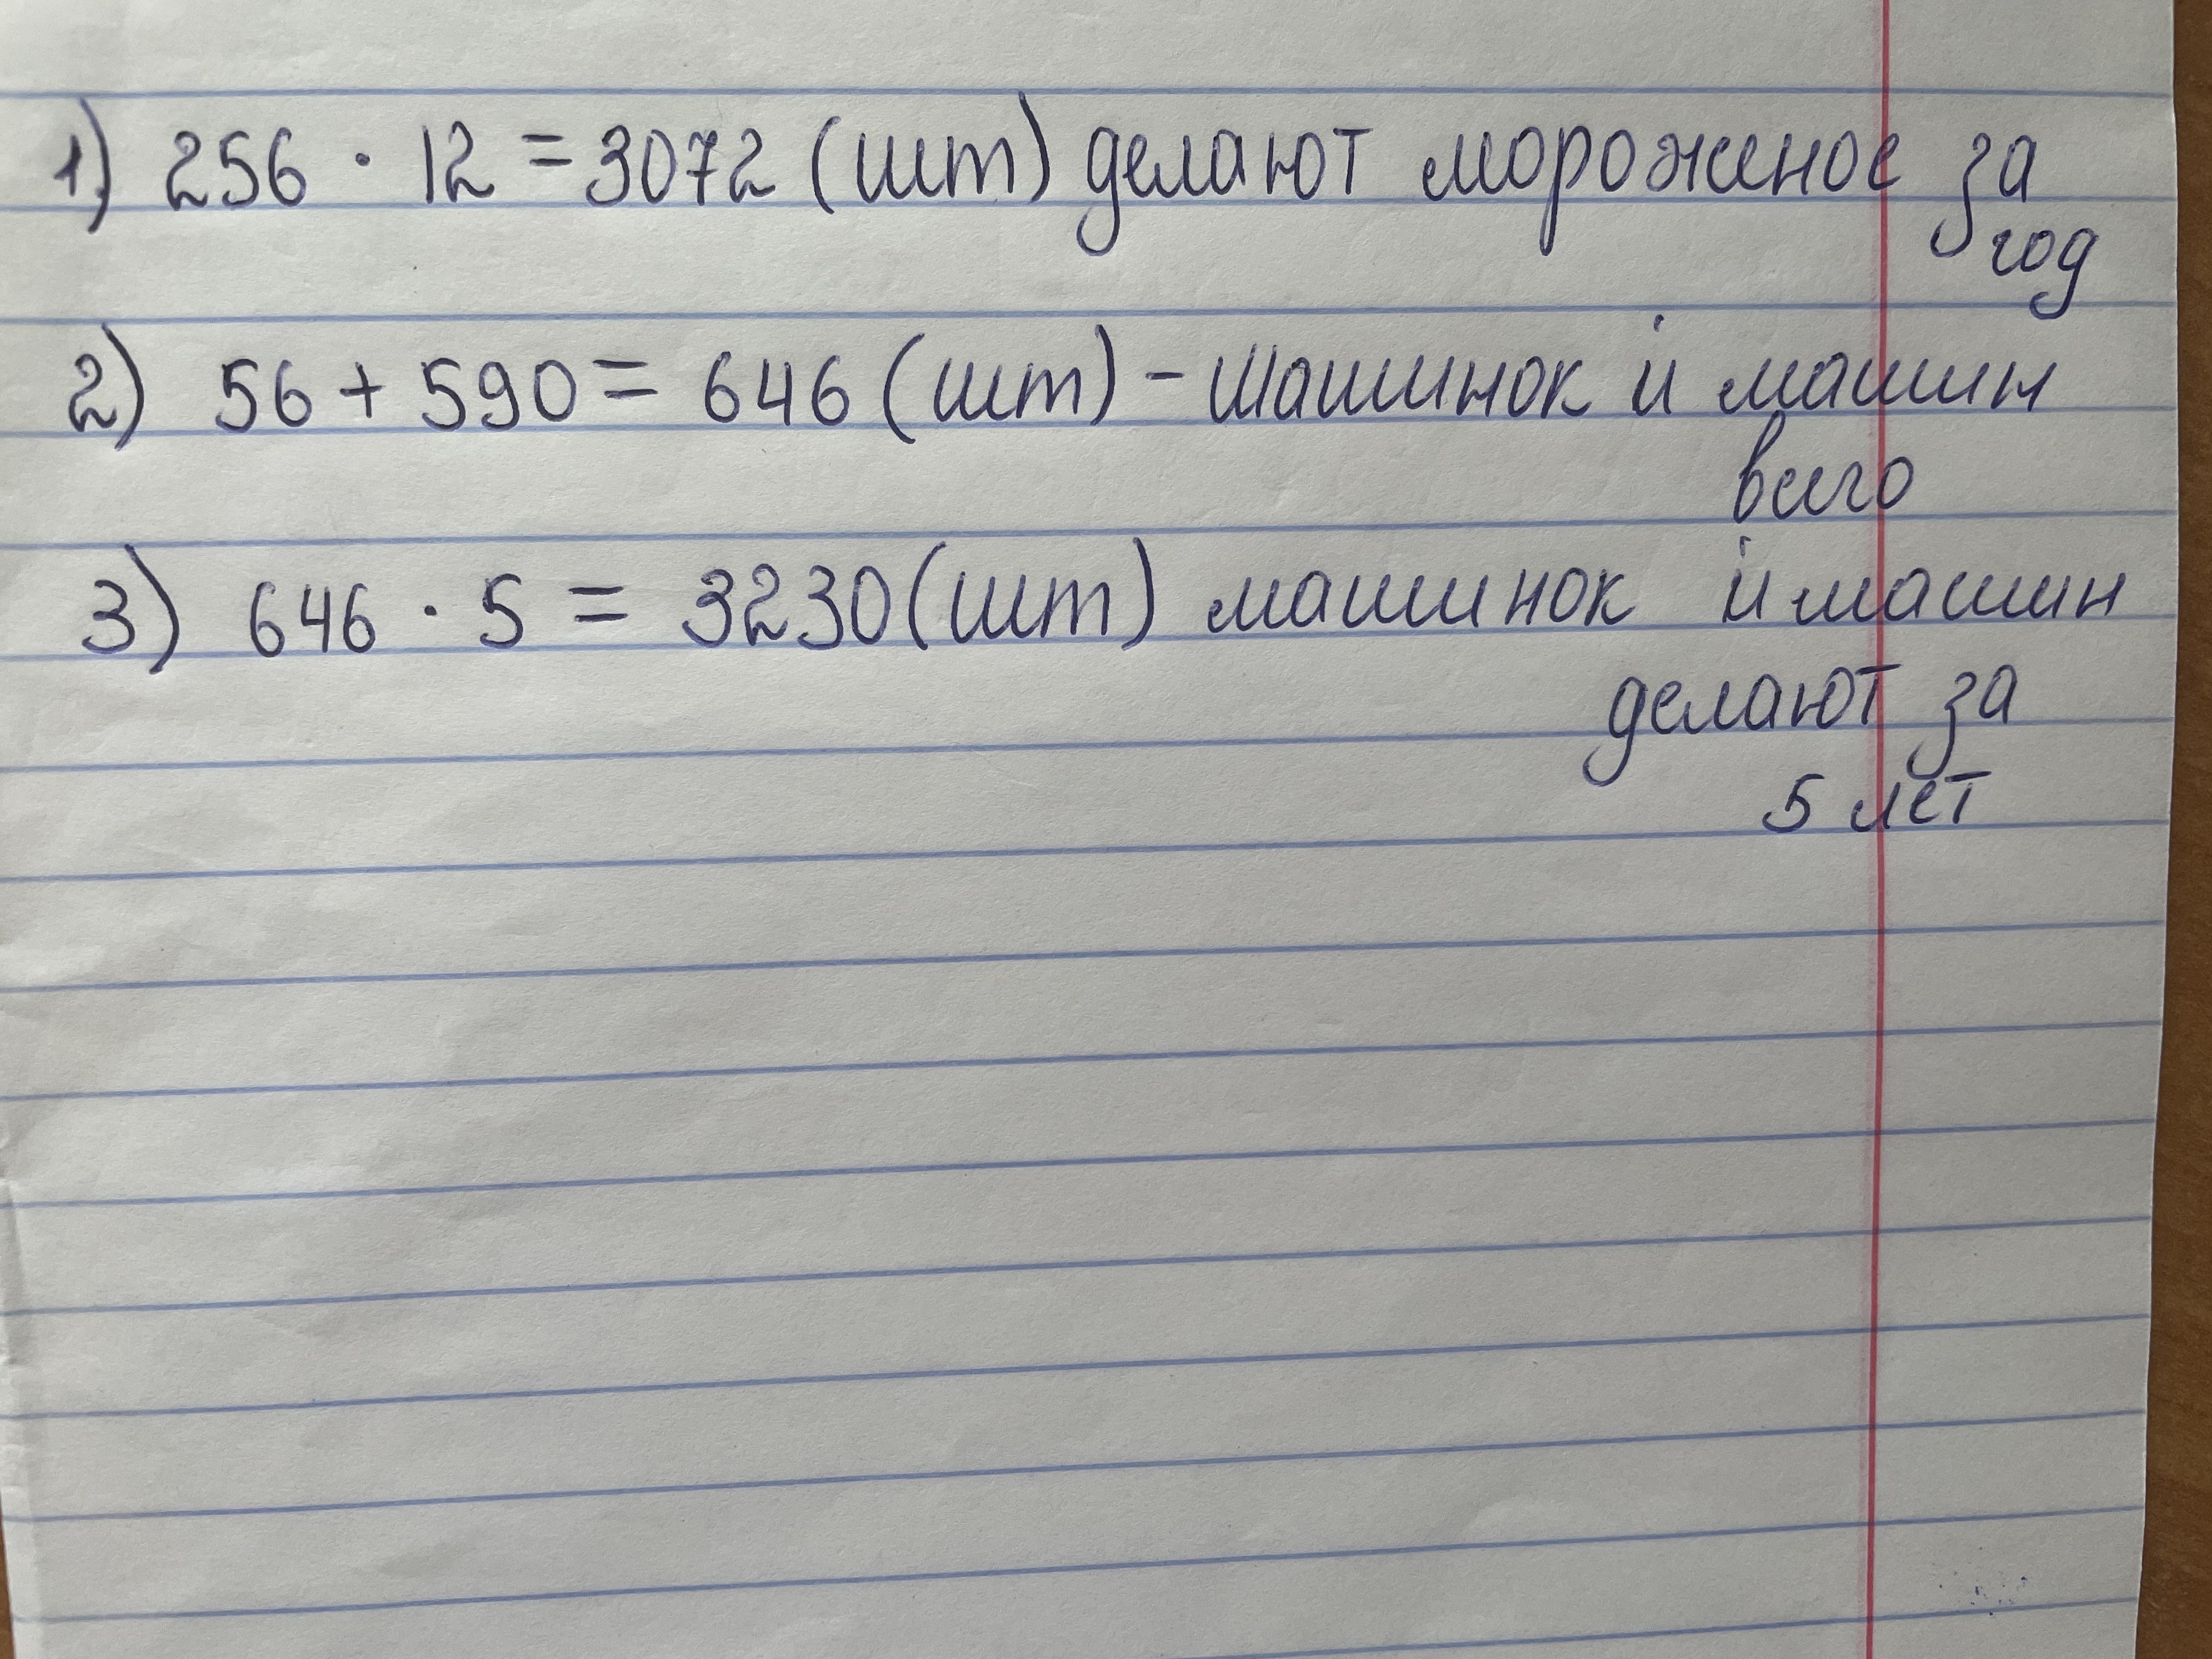 1) 256 · 12 = 3072 (шт) делают мороженое за
год
2) 56 + 590 = 646 (шт) - машинок и машин
всего
3) 646 · 5 = 3230 (шт) машинок и машин
делают за
5 лет